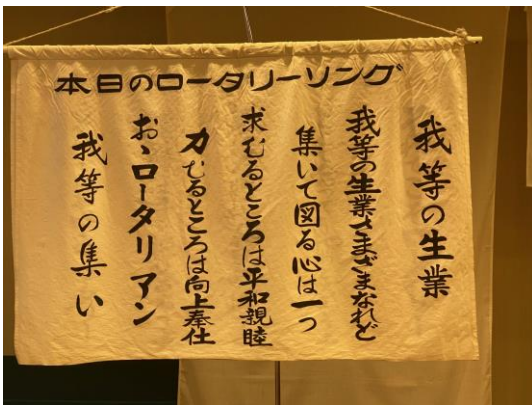 本日のロータリーソング
我等の生業
我等の生業さまざまなれど
集いて図る心は一つ
求むるところは平和親睦
力むるところは向上奉仕
おゝロータリアン
我等の集い